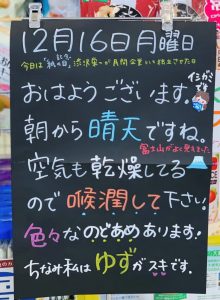 12月16日月曜日
今日は「紙の記念日」渋沢栄一が民間企業から独立させた日
おはようございます。
イヨカンです
朝から晴天ですね。
富士山がよく見えました
空気も乾燥してる
ので喉潤して下さい。
色々なのどあめあります!
ちなみ私はゆずがスキです。